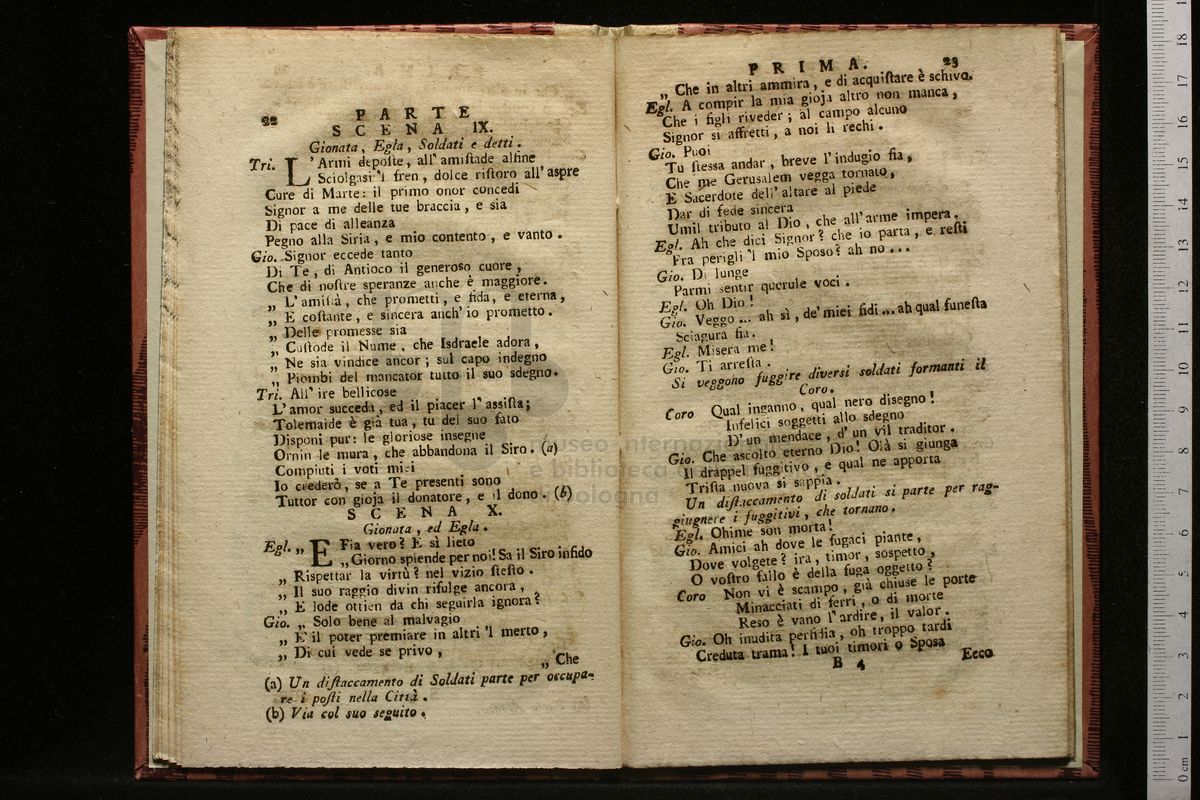 22 PARTE
SCENA IX.
Gionata, Egla, Soldati e detti.
Tri. L'Armi depoſte, all' amiſtade alfine
Sciolgasi 'l fren, dolce riſtoro all' aspre
Cure di Marte: il primo onor concedi
Signor a me delle tue braccia, e sia
Di pace di alleanza
Pegno alla Siria, e mio contento, e vanto.
Gio. Signor eccede tanto
Di Te, di Antioco il generoso cuore,
Che di noſtre speranze anche è maggiore.
„ L' amiſtà, che prometti, e fida, e eterna,
„ E coſtante, e sincera anch' io prometto.
„ Delle promesse sia
„ Cuſtode il Nume, che Isdraele adora,
„ Ne sia vindice ancor; sul capo indegno
„ Piombi del mancator tutto il suo sdegno.
Tri. All' ire bellicose
L' amor succeda, ed il piacer l' assiſta;
Tolemaide è già tua, tu del suo fato
Disponi pur: le gloriose insegne
Ornin le mura, che abbandona il Siro. (a)
Compiuti i voti miei
Io crederò, se a Te presenti sono
Tuttor con gioja il donatore, e il dono. (b)
SCENA X.
Gionata, ed Egla.
Egl. „ E Fia vero? E sì lieto
„ Giorno splende per noi! Sa il Siro infido
„ Rispettar la virtù? nel vizio ſteſto.
„ Il suo raggio divin rifulge ancora,
„ E lode ottien da chi seguirla ignora?
Gio. „ Solo bene al malvagio
„ E' il poter premiare in altri 'l merto,
„ Di cui vede se privo,
„ Che
(a) Un diſtaccamento di Soldati parte per occupa-
re i poſti nella Città.
(b) Via col suo seguito.
PRIMA. 23
„ Che in altri ammira, e di acquiſtare è schivo.
Egl. A compir la mia gioja altro non manca,
Che i figli riveder; al campo alcuno
Signor si affretti, a noi li rechi.
Gio. Puoi
Tu ſtessa andar, breve l' indugio fia,
Che me Gerusalem vegga tornato,
E Sacerdote dell' altare al piede
Dar di fede sincera
Umil tributo al Dio, che all' arme impera.
Egl. Ah che dici Signor? che io parta, e reſti
Fra perigli 'l mio Sposo? ah no ...
Gio. Di lunge
Parmi sentir querule voci.
Egl. Oh Dio!
Gio. Veggo ... ah sì, de' miei fidi ... ah qual funeſta
Sciagura fia.
Egl. Misera me!
Gio. Ti arreſta.
Si veggono fuggire diversi soldati formanti il
Coro.
Coro Qual inganno, qual nero disegno!
Infelici soggetti allo sdegno
D' un mendace, d' un vil traditor.
Gio. Che ascolto eterno Dio! Olà si giunga
Il drappel fuggitivo, e qual ne apporta
Triſta nuova si sappia.
Un diſtaccamento di soldati si parte per rag-
giugnere i fuggitivi, che tornano.
Egl. Ohime son morta!
Gio. Amici ah dove le fugaci piante,
Dove volgete? ira, timor, sospetto,
O voſtro fallo è della fuga oggetto?
Coro Non vi è scampo, già chiuse le porte
Minacciati di ferri, o di morte
Reso è vano l' ardire, il valor.
Gio. Oh inudita perfidia, oh troppo tardi
Creduta trama! I tuoi timori o Sposa
B 4 Ecco
museo internazionale
e biblioteca
bologna
0 cm 1 2 3 4 5 6 7 8 9 10 11 12 13 14 15 16 17 18